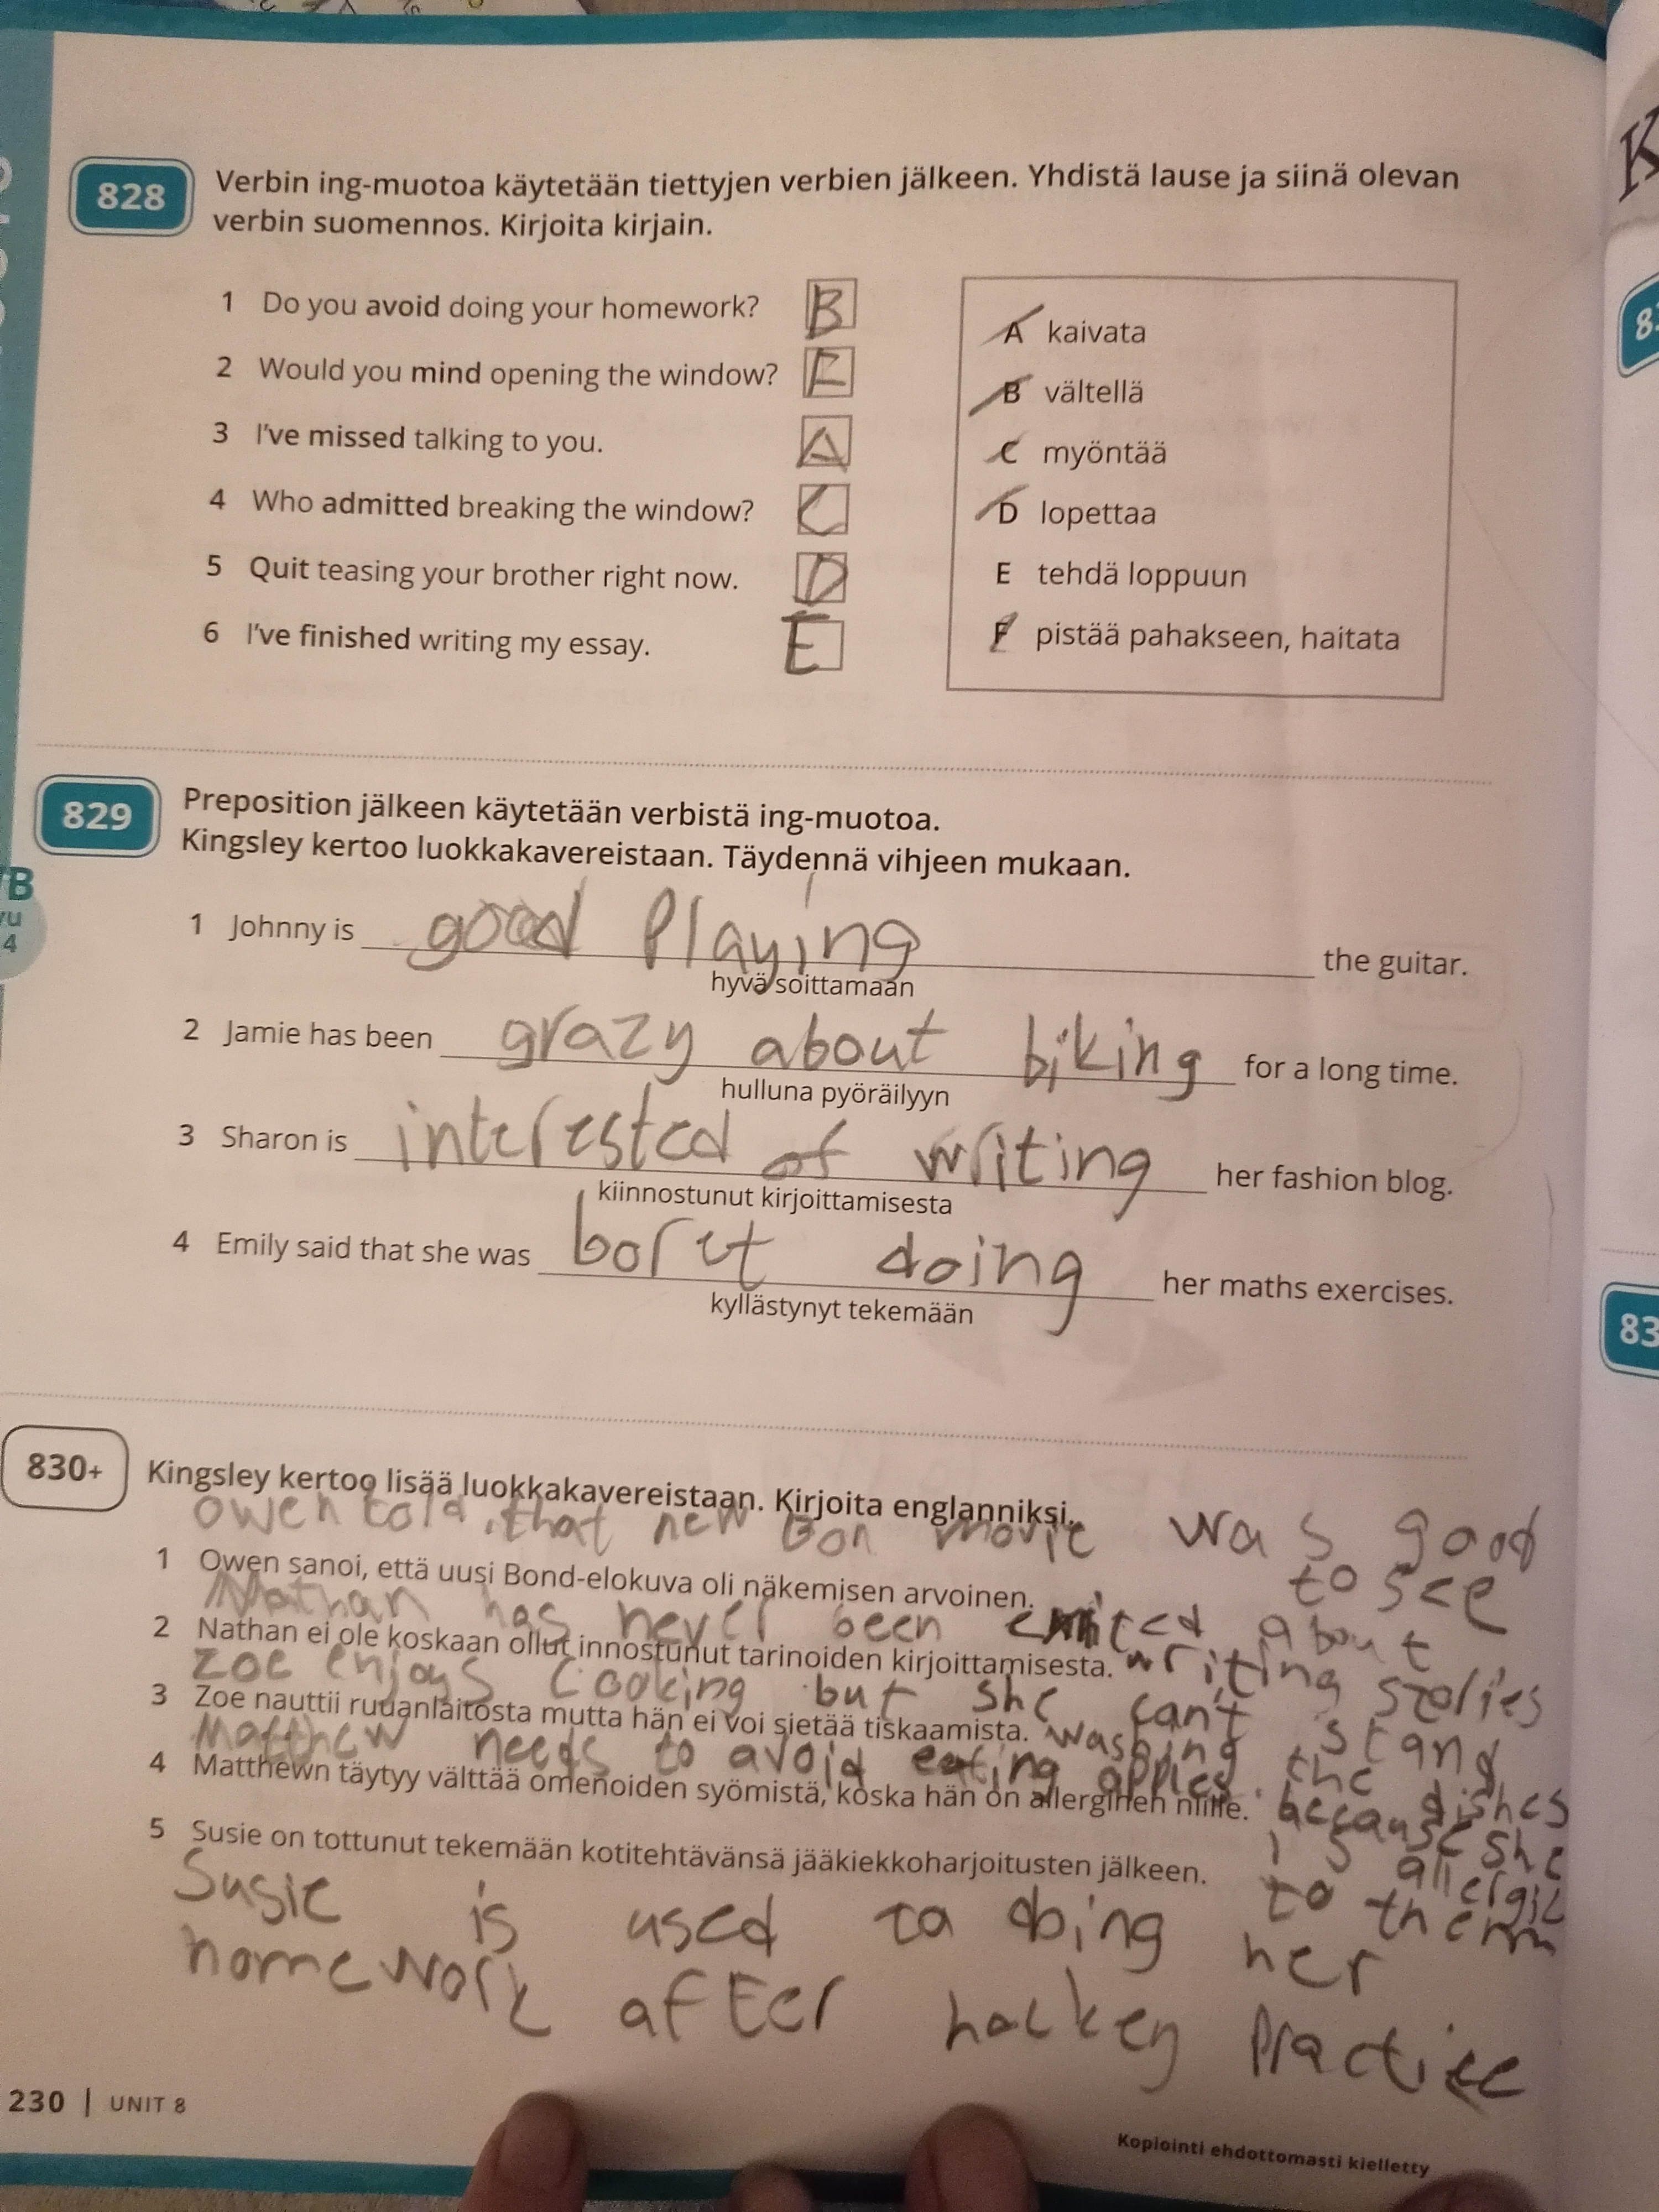 828 Verbin ing-muotoa käytetään tiettyjen verbien jälkeen. Yhdistä lause ja siinä olevan
verbin suomennos. Kirjoita kirjain.
1 Do you avoid doing your homework? B
2 Would you mind opening the window? F
3 I've missed talking to you. A
4 Who admitted breaking the window? C
5 Quit teasing your brother right now. D
6 I've finished writing my essay. E
A kaivata
B vältellä
C myöntää
D lopettaa
E tehdä loppuun
F pistää pahakseen, haitata
829 Preposition jälkeen käytetään verbistä ing-muotoa.
Kingsley kertoo luokkakavereistaan. Täydennä vihjeen mukaan.
1 Johnny is good playing the guitar.
hyvä soittamaan
2 Jamie has been grazy about biking for a long time.
hulluna pyöräilyyn
3 Sharon is interested of writing her fashion blog.
kiinnostunut kirjoittamisesta
4 Emily said that she was boret doing her maths exercises.
kyllästynyt tekemään
830+ Kingsley kertoo lisää luokkakavereistaan. Kirjoita englanniksi.
owen told, that new Bon movie was good
to see
1 Owen sanoi, että uusi Bond-elokuva oli näkemisen arvoinen.
Nathan has never been about
writing stories
2 Nathan ei ole koskaan ollut innostunut tarinoiden kirjoittamisesta.
Zoe enjoys cooking but she can't stand
washing the dishes
3 Zoe nauttii ruuanlaitosta mutta hän ei voi sietää tiskaamista.
Matthew needs to avoid eating apples because she
is allergic
to them
4 Matthewn täytyy välttää omenoiden syömistä, koska hän on allerginen niille.
5 Susie on tottunut tekemään kotitehtävänsä jääkiekkoharjoitusten jälkeen.
Susie is used to doing her
homework after hockey practice
230 | UNIT 8
Kopiointi ehdottomasti kielletty
B
vu
4
K
83